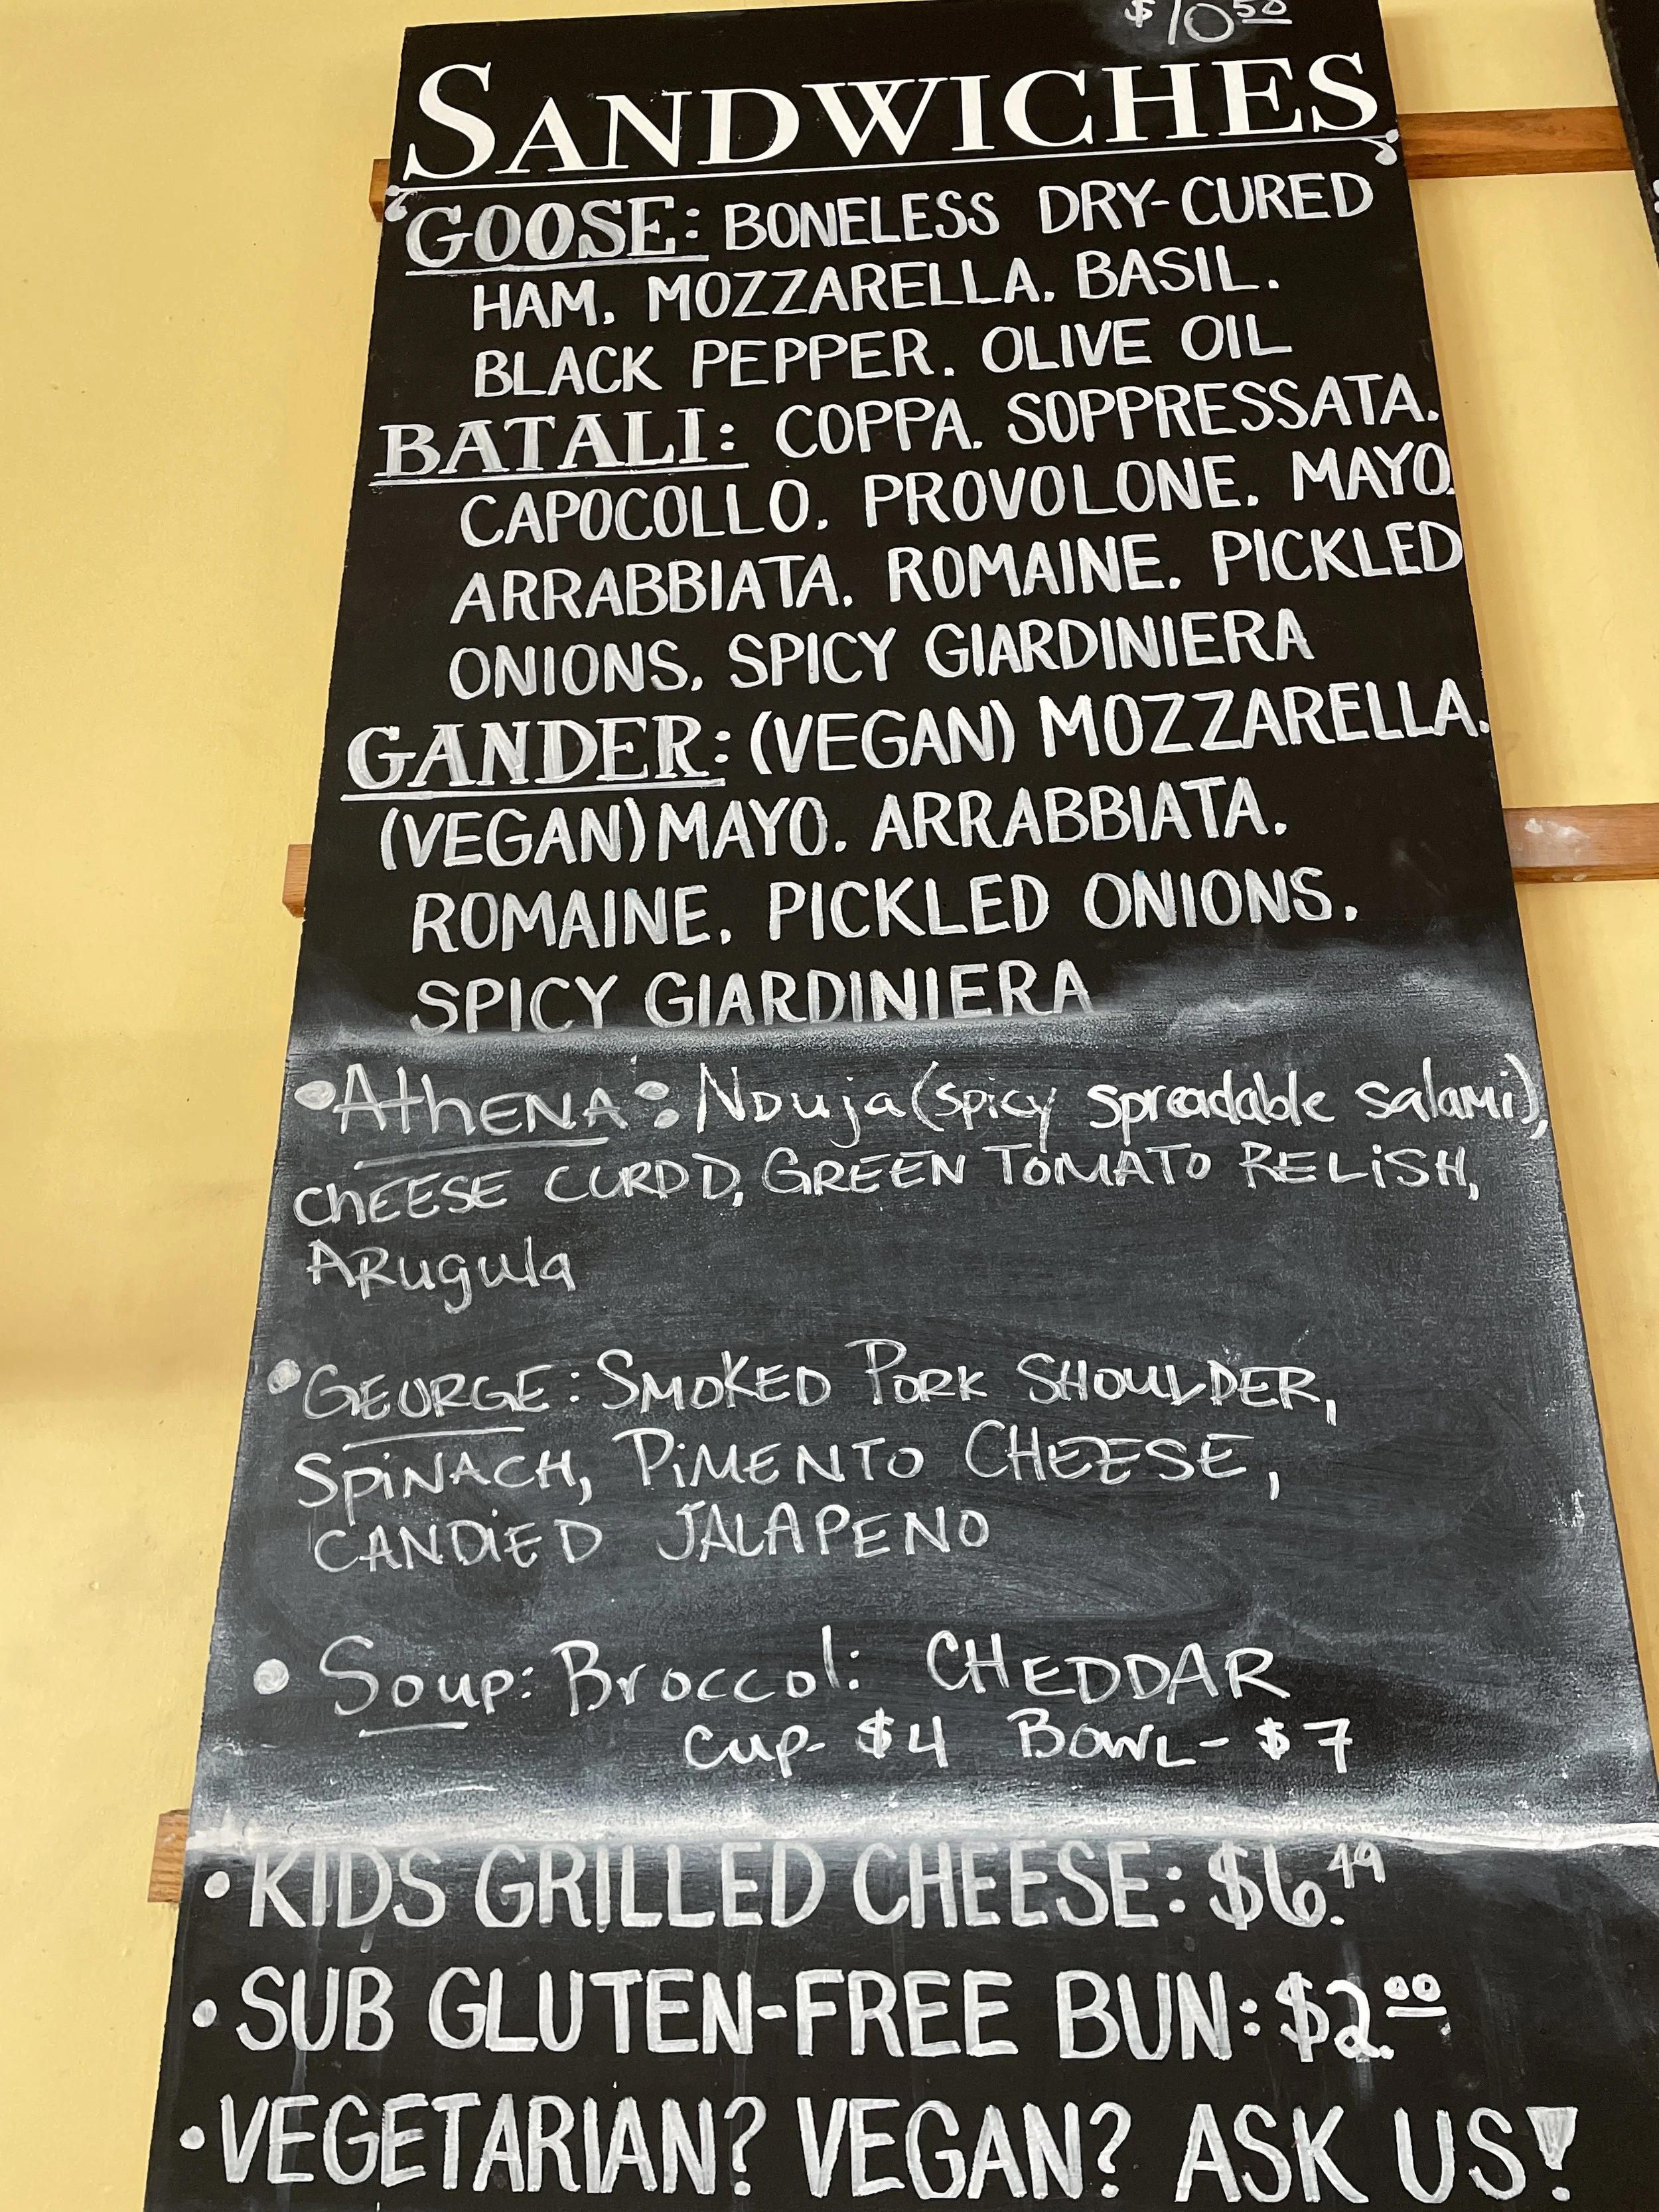 $10 50
SANDWICHES
GOOSE: BONELESS DRY-CURED
HAM. MOZZARELLA. BASIL.
BLACK PEPPER. OLIVE OIL
BATALI: COPPA. SOPPRESSATA.
CAPOCOLLO. PROVOLONE. MAYO.
ARRABBIATA. ROMAINE. PICKLED
ONIONS. SPICY GIARDINIERA
GANDER: (VEGAN) MOZZARELLA.
(VEGAN) MAYO. ARRABBIATA.
ROMAINE. PICKLED ONIONS.
SPICY GIARDINIERA
•AthENA: NDuja (spicy spreadable salami),
ChEESE CURDD, GREEN TOMATO RELiSH,
ARugula
•GEORGE: SMOKED PORK SHOULDER,
SPiNACH, PiMENTO CHEESE,
CANDiED JALAPENO
• Soup: Broccoli CHEDDAR
Cup- $4 BOWL- $7
•KIDS GRILLED CHEESE: $6.49
•SUB GLUTEN-FREE BUN: $2.00
•VEGETARIAN? VEGAN? ASK US!